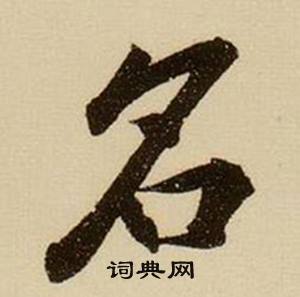 名
词典网